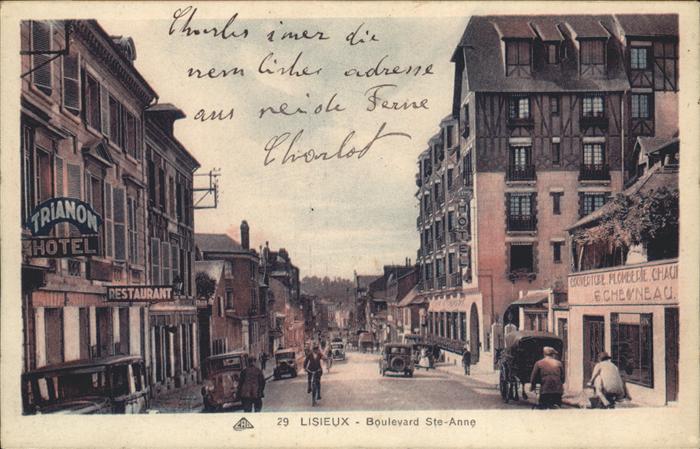 Charles immer die
nemlicher adresse
aus neide Ferne
Charlot
TRIANON
HOTEL
RESTAURANT
COUVERTURE PLOMBERIE CHAU
29 LISIEUX - Boulevard Ste-Anne